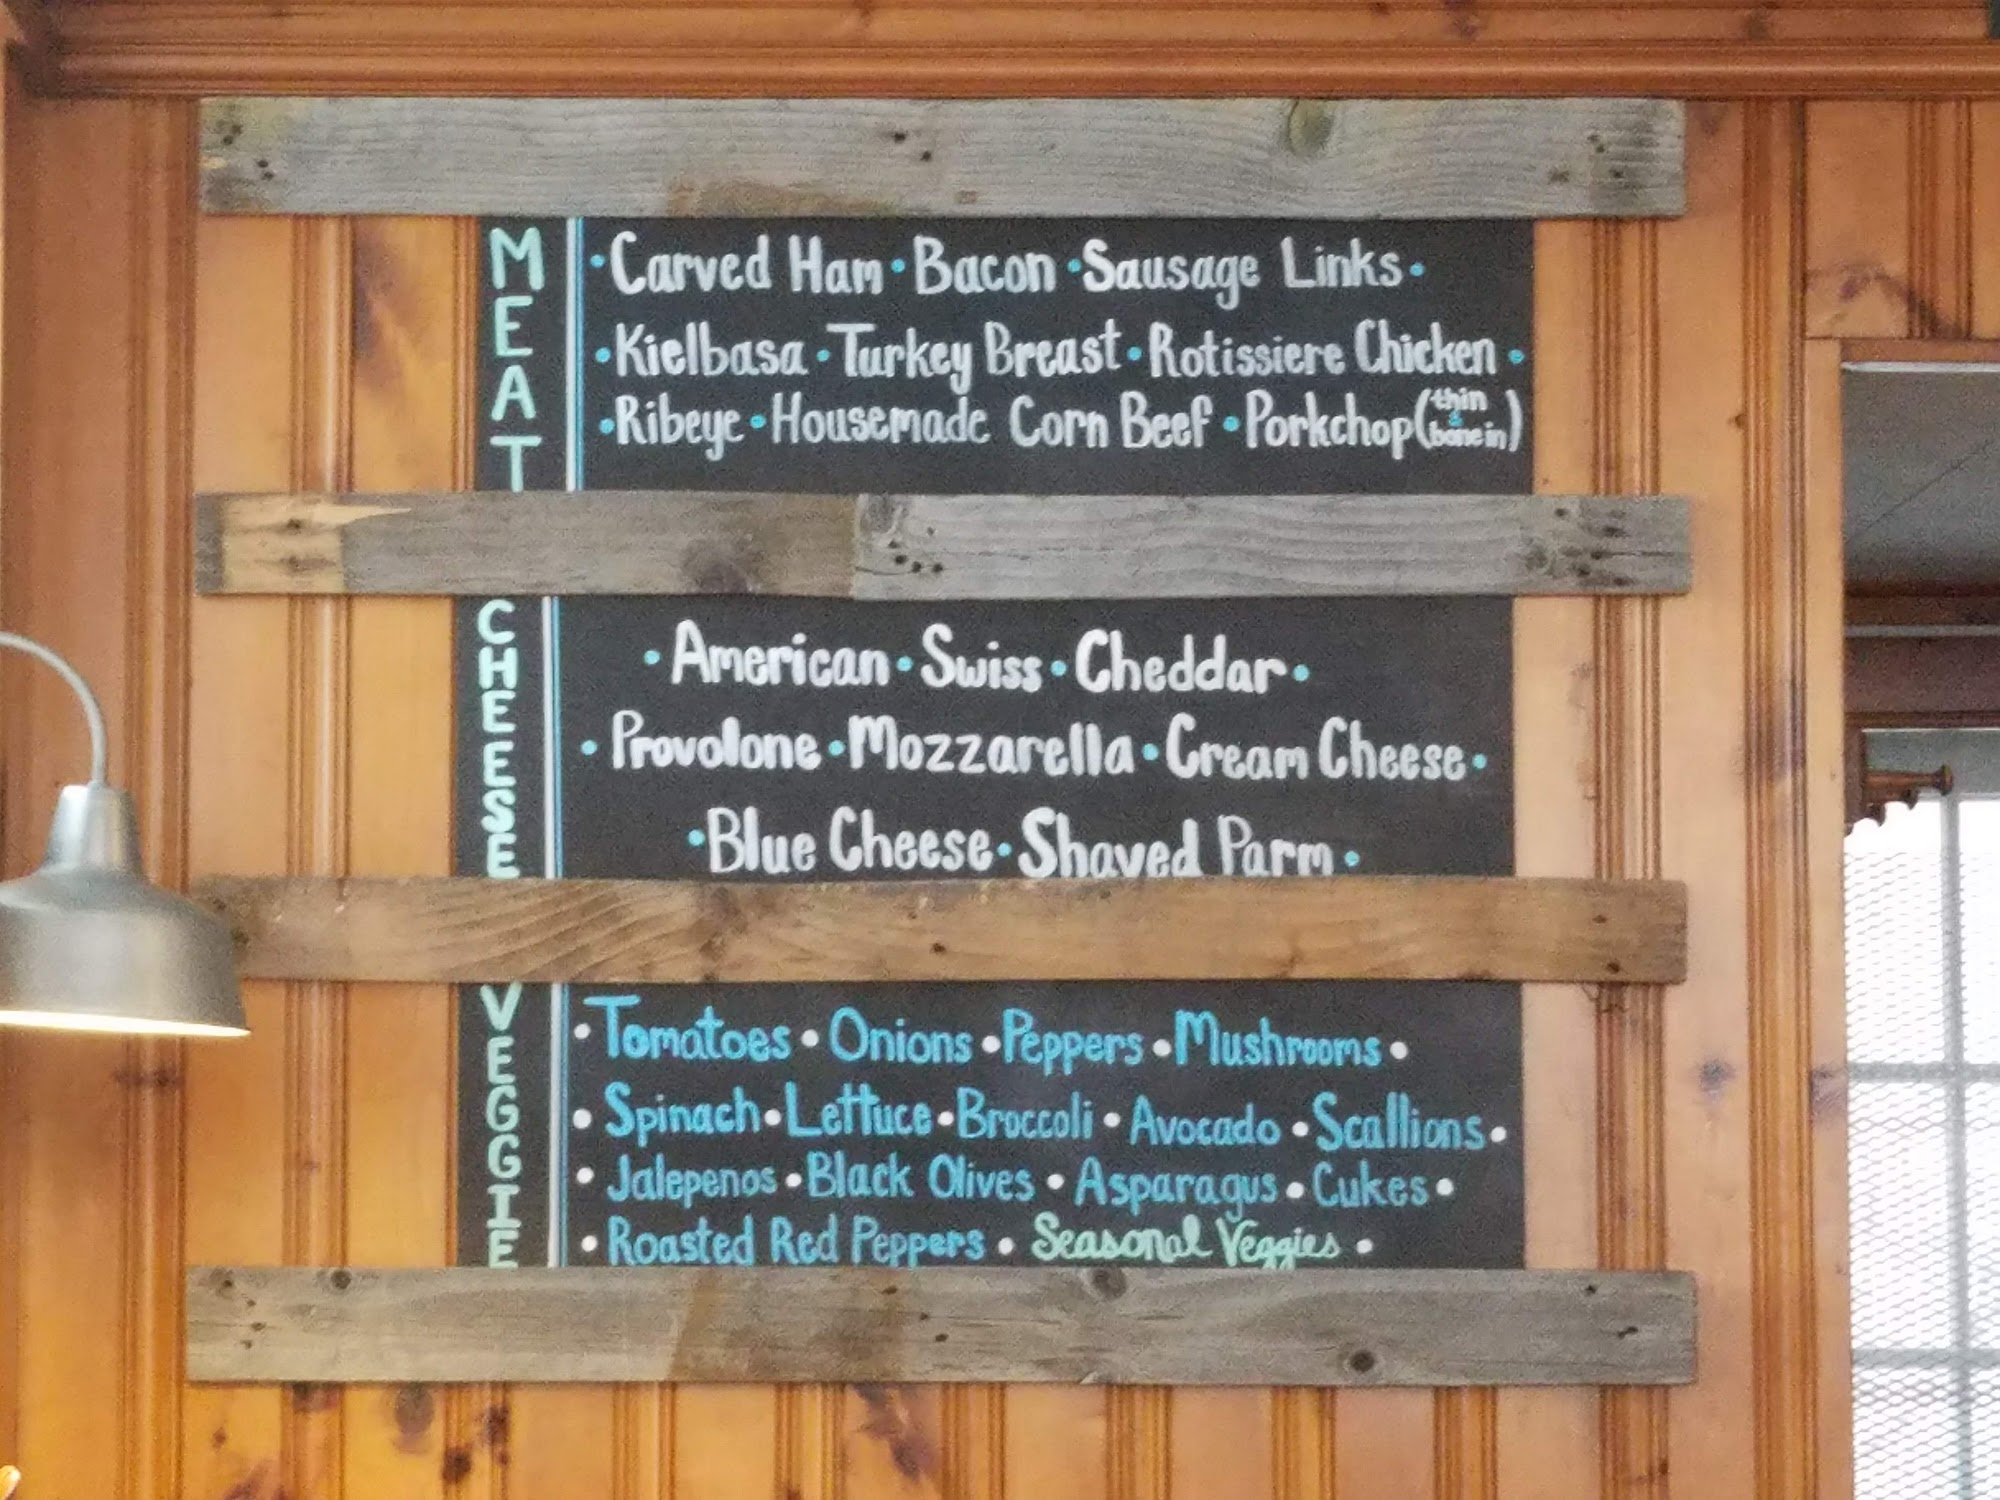 MEAT
•Carved Ham•Bacon•Sausage Links•
•Kielbasa•Turkey Breast•Rotissiere Chicken•
•Ribeye•Housemade Corn Beef•Porkchop(thin & bone in)
CHEESE
•American•Swiss•Cheddar•
•Provolone•Mozzarella•Cream Cheese•
•Blue Cheese•Shaved Parm•
VEGGIE
•Tomatoes•Onions•Peppers•Mushrooms•
•Spinach•Lettuce•Broccoli•Avocado•Scallions•
•Jalepenos•Black Olives•Asparagus•Cukes•
•Roasted Red Peppers•Seasonal Veggies•